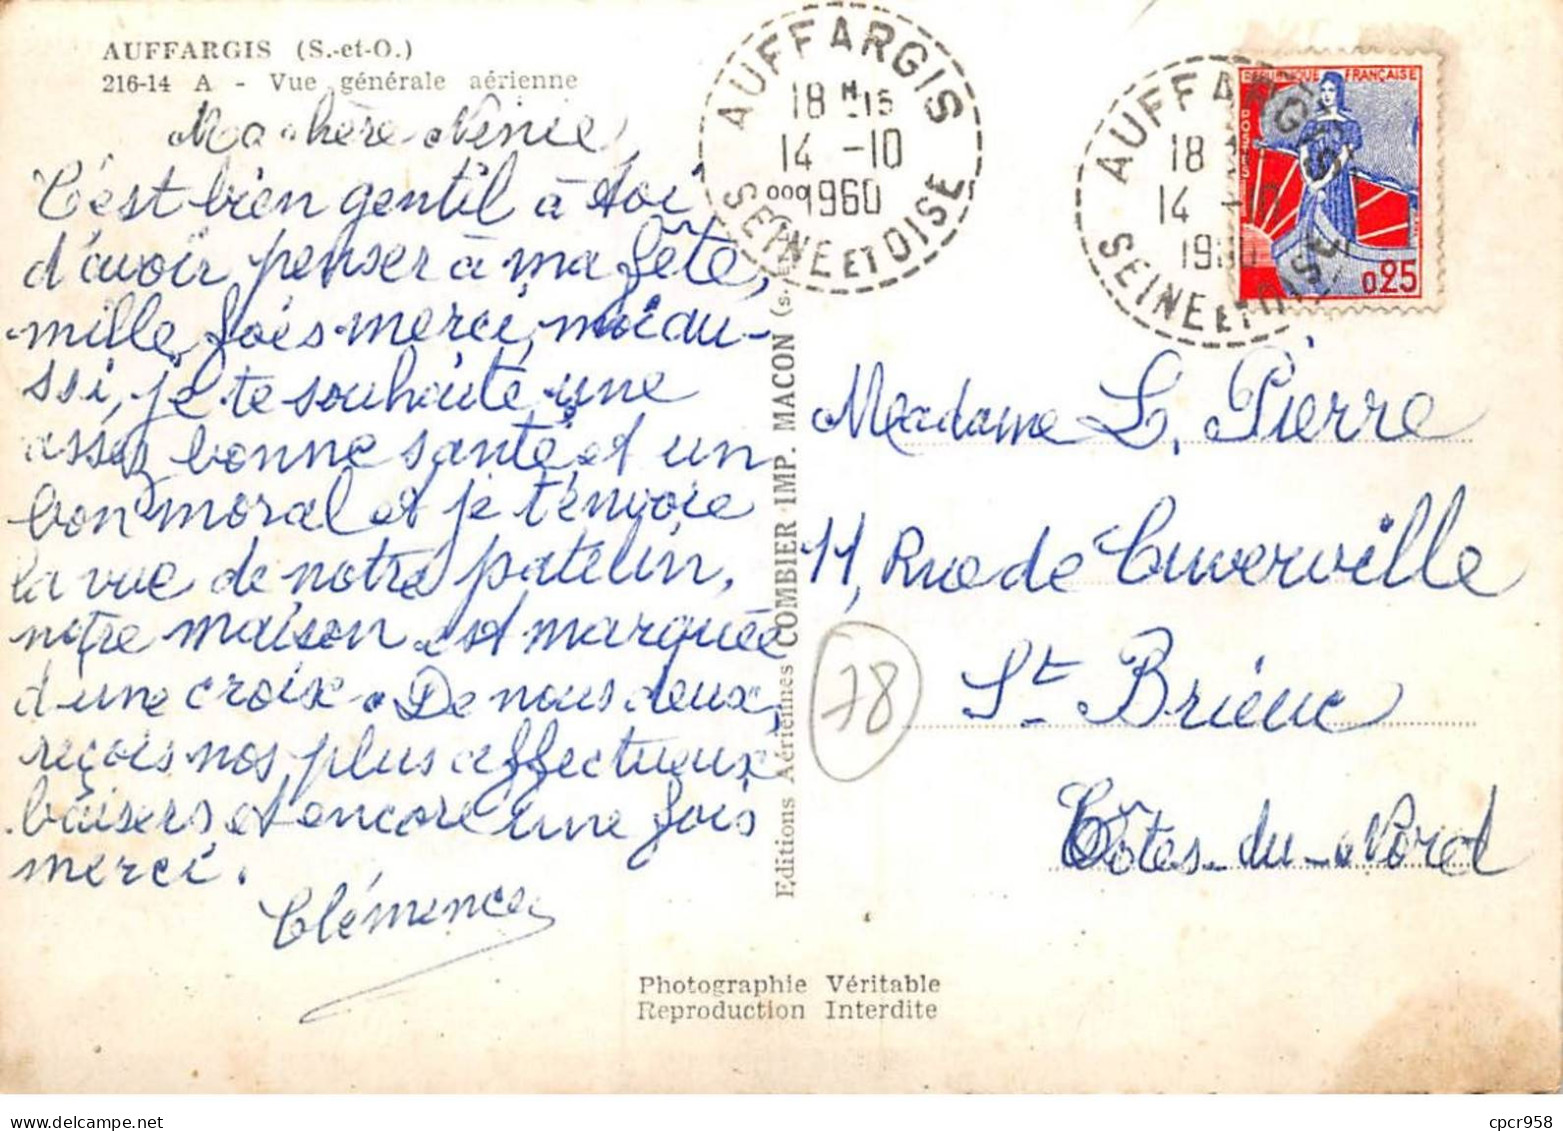 AUFFARGIS (S.-et-O.)
216-14 A - Vue générale aérienne
Ma chère Ninie,
C'est bien gentil à toi
d'avoir penser à ma fête,
mille fois merci, moi au-
ssi, je te souhaite une
assez bonne santé et un
bon moral et je t'envoie
la vue de notre patelin,
notre maison est marquée
d'une croix. De nous deux,
reçois nos plus affectueux
baisers et encore une fois
merci.
Clémence
Editions Aériennes COMBIER IMP. MACON (S.-
AUFFARGIS
18 H 15
14 -10
1960
SEINE ET OISE
AUFFARGIS
18
14 -10
19
SEINE ET OISE
REPUBLIQUE FRANÇAISE
POSTES
0,25
Madame L. Pierre
11, Rue de Cuverville
St Brieuc
Côtes-du-Nord
78
Photographie Véritable
Reproduction Interdite
cpcr958